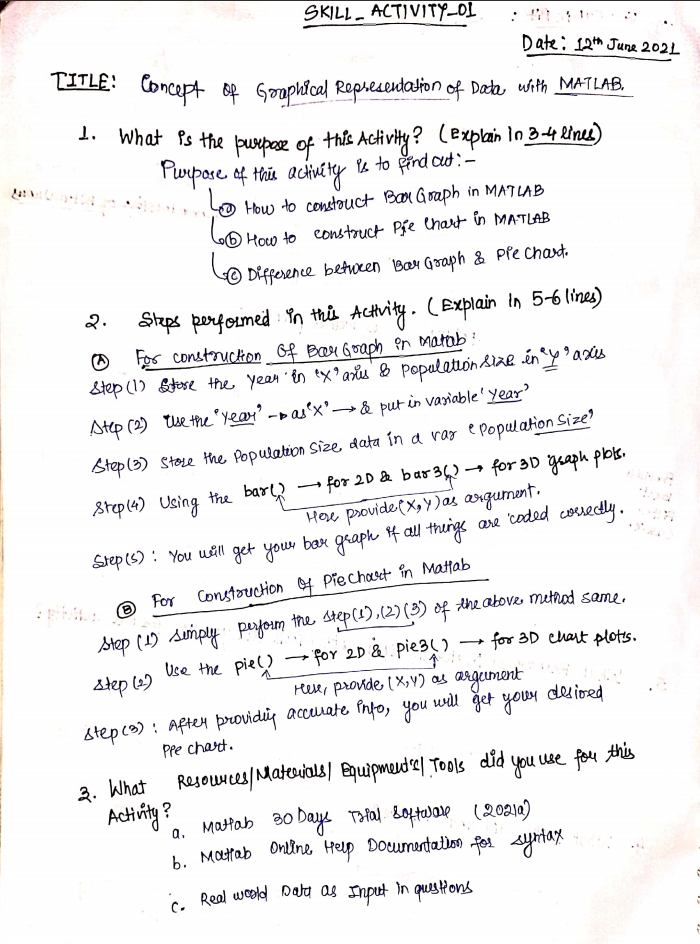 SKILL_ACTIVITY_01
Date: 12th June 2021
TITLE: Concept of Graphical Representation of Data with MATLAB.
1. What is the purpose of this Activity? (Explain in 3-4 lines)
Purpose of this activity is to find out:-
(a) How to construct Bar Graph in MATLAB
(b) How to construct Pie Chart in MATLAB
(c) Difference between Bar Graph & Pie Chart.
2. Steps performed in this Activity. (Explain in 5-6 lines)
(A) For construction Of Bar Graph in Matlab:
Step (1) Store the Year in 'X' axis & Population Size in 'Y' axis
Step (2) Use the 'Year' → as 'X' → & put in variable 'Year'
Step (3) Store the Population Size data in a var 'Population Size'
Step (4) Using the bar() → for 2D & bar3() → for 3D graph plots.
Here provide (X,Y) as argument.
Step (5): You will get your bar graph if all things are coded correctly.
(B) For Construction Of Pie Chart in Matlab
Step (1) Simply perform the Step (1), (2) (3) of the above method same.
Step (2) Use the pie() → for 2D & pie3() → for 3D chart plots.
Here, provide (X,Y) as argument
Step (3): After providing accurate info, you will get your desired
pie chart.
3. What Resources/Materials/Equipments/Tools did you use for this
Activity?
a. Matlab 30 Days Trial Software (2021a)
b. Matlab Online Help Documentation for syntax
c. Real world Data as Input in questions